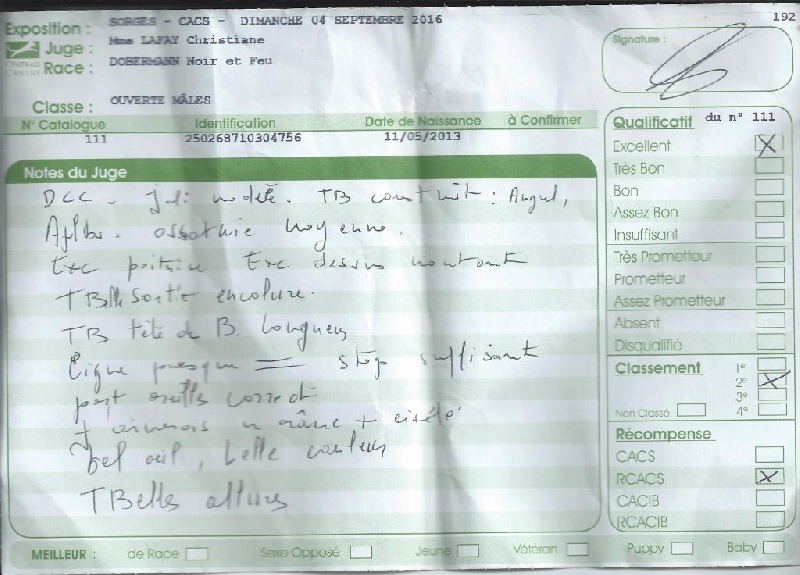 Exposition : SORGES - CACS - DIMANCHE 04 SEPTEMBRE 2016
192
Juge : Mme LAFAY Christiane
CENTRALE CANINE
Race : DOBERMANN Noir et Feu
Signature :
Classe : OUVERTE MÂLES
N° Catalogue Identification Date de Naissance à Confirmer
111 250268710304756 11/05/2013
Notes du Juge
DCC - Joli modèle. TB construit : Angul,
Aplbs. ossature moyenne.
Exc poitrine Exc. dessus montant
TBelle sortie encolure.
TB tête de B. longueur
Ligne presque = stop suffisant
port oreilles correct
J'aimerais un crâne + ciselé
bel œil, belle couleur
TBelles allures
Qualificatif du n° 111
Excellent X
Très Bon
Bon
Assez Bon
Insuffisant
Très Prometteur
Prometteur
Assez Prometteur
Absent
Disqualifié
Classement 1°
2° X
3°
Non Classé 4°
Récompense
CACS
RCACS X
CACIB
RCACIB
MEILLEUR : de Race Sexe Opposé Jeune Vétéran Puppy Baby